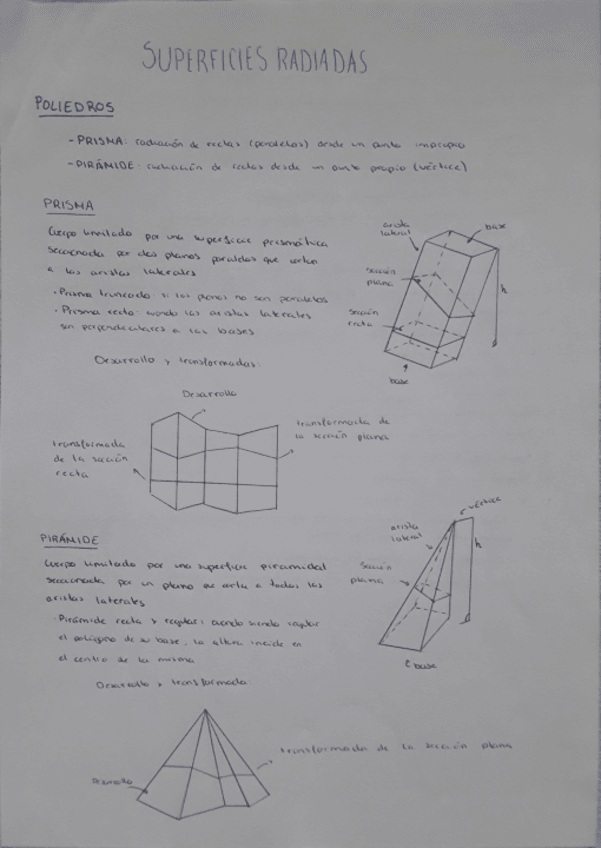 SUPERFICIES RADIADAS
POLIEDROS
- PRISMA: radiación de rectas (paralelas) desde un punto impropio
- PIRÁMIDE: radiación de rectas desde un punto propio (vértice)
PRISMA
Cuerpo limitado por una superficie prismática
seccionada por dos planos paralelos que cortan
a las aristas laterales
· Prisma truncado: si los planos no son paralelos
· Prisma recto: cuando las aristas laterales
son perpendiculares a las bases
arista
lateral
base
sección
plana
h
sección
recta
base
Desarrollo y transformadas:
Desarrollo
transformada de
la sección plana
transformada
de la sección
recta
PIRÁMIDE
Cuerpo limitado por una superficie piramidal
seccionada por un plano que corta a todas las
aristas laterales
· Pirámide recta y regular: cuando siendo regular
el polígono de su base, la altura incide en
el centro de la misma
vértice
arista
lateral
h
sección
plana
base
Desarrollo y transformada
transformada de la sección plana
Desarrollo